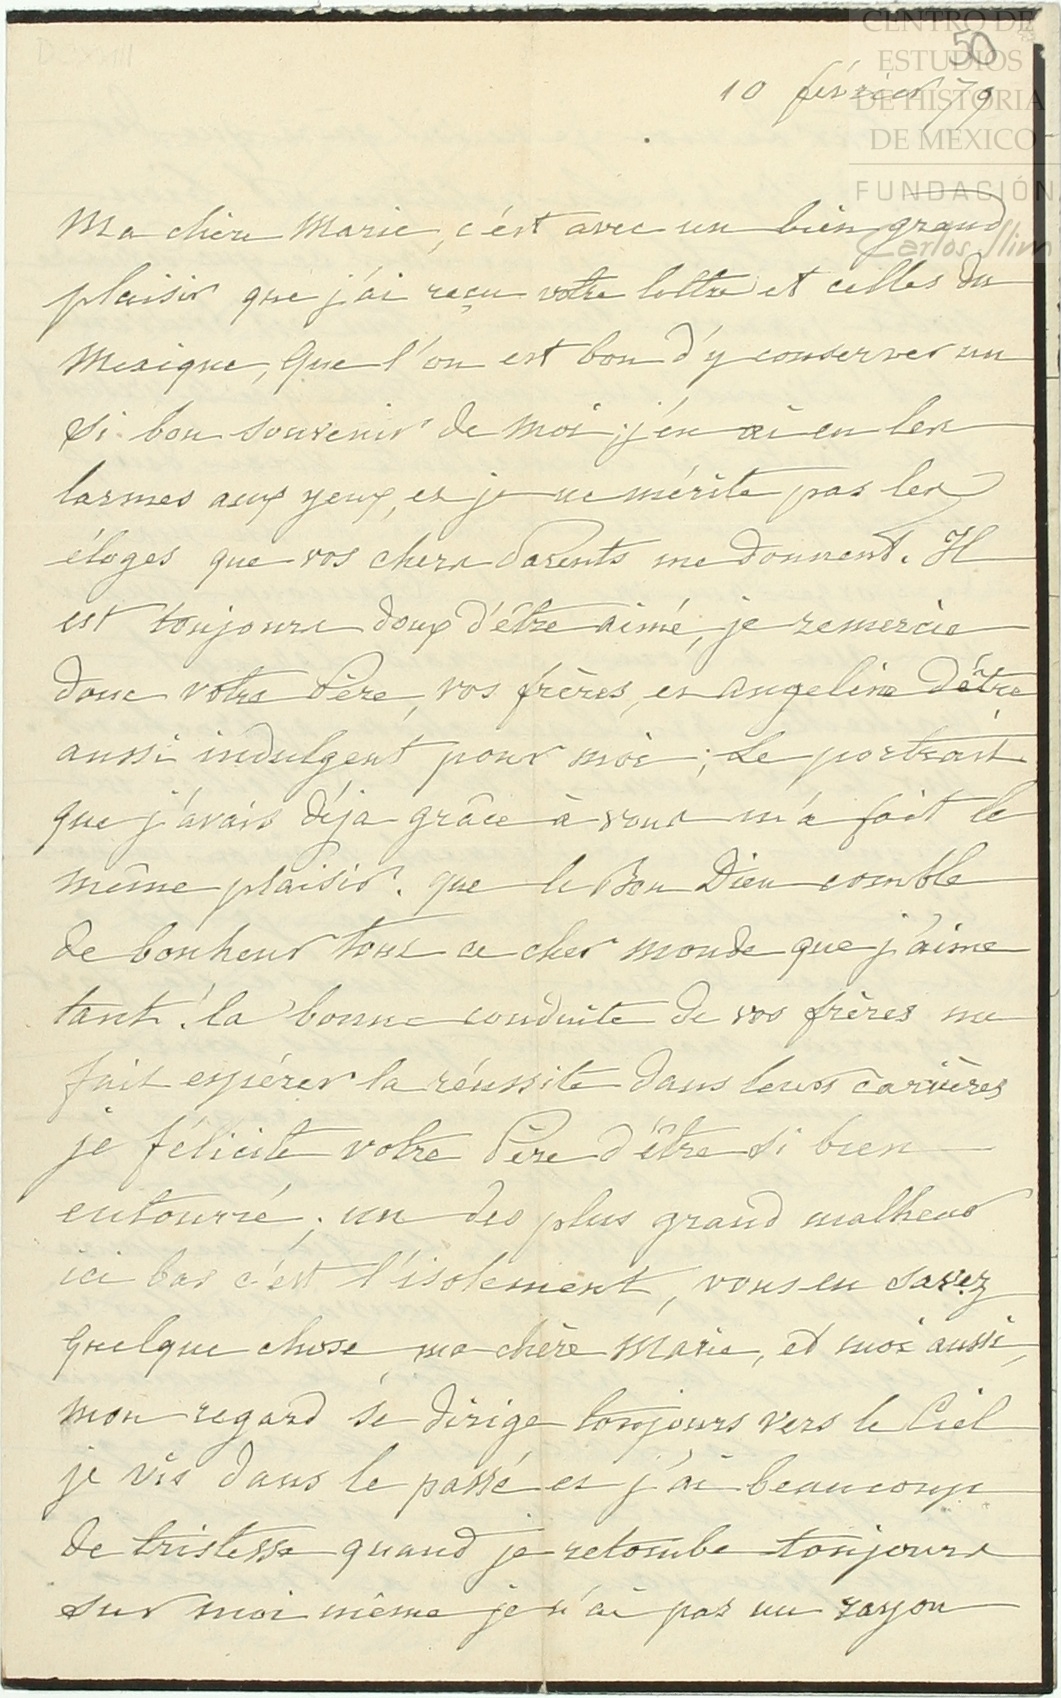 CENTRO DE
ESTUDIOS
DE HISTORIA
DE MÉXICO
FUNDACIÓN
Carlos Slim
50
10 février 79
Ma chère Marie, c'est avec un bien grand
plaisir que j'ai reçu votre lettre et celles du
Mexique, Que l'on est bon d'y conserver un
si bon souvenir de moi; j'en ai eu les
larmes aux yeux, et je ne mérite pas les
éloges que vos chers Parents me donnent. Il
est toujours doux d'être aimé, je remercie
donc votre Père, vos frères, et Angeline d'être
aussi indulgent pour moi; Le portrait
que j'avais déja grâce à vous m'a fait le
même plaisir. que le Bon Dieu comble
de bonheur tous ce cher monde que j'aime
tant! la bonne conduite de vos frères me
fait espérer la réussite dans leurs carières
je félicite votre Père d'être si bien
entourré; un des plus grand malheur
ici bas c'est l'isolement, vous en savez
quelque chose ma chère Marie, et moi aussi,
mon regard se dirige toujours vers le Ciel
je vis dans le passé et j'ai beaucoup
de tristesse quand je retombe toujours
sur moi même je n'ai pas un rayon